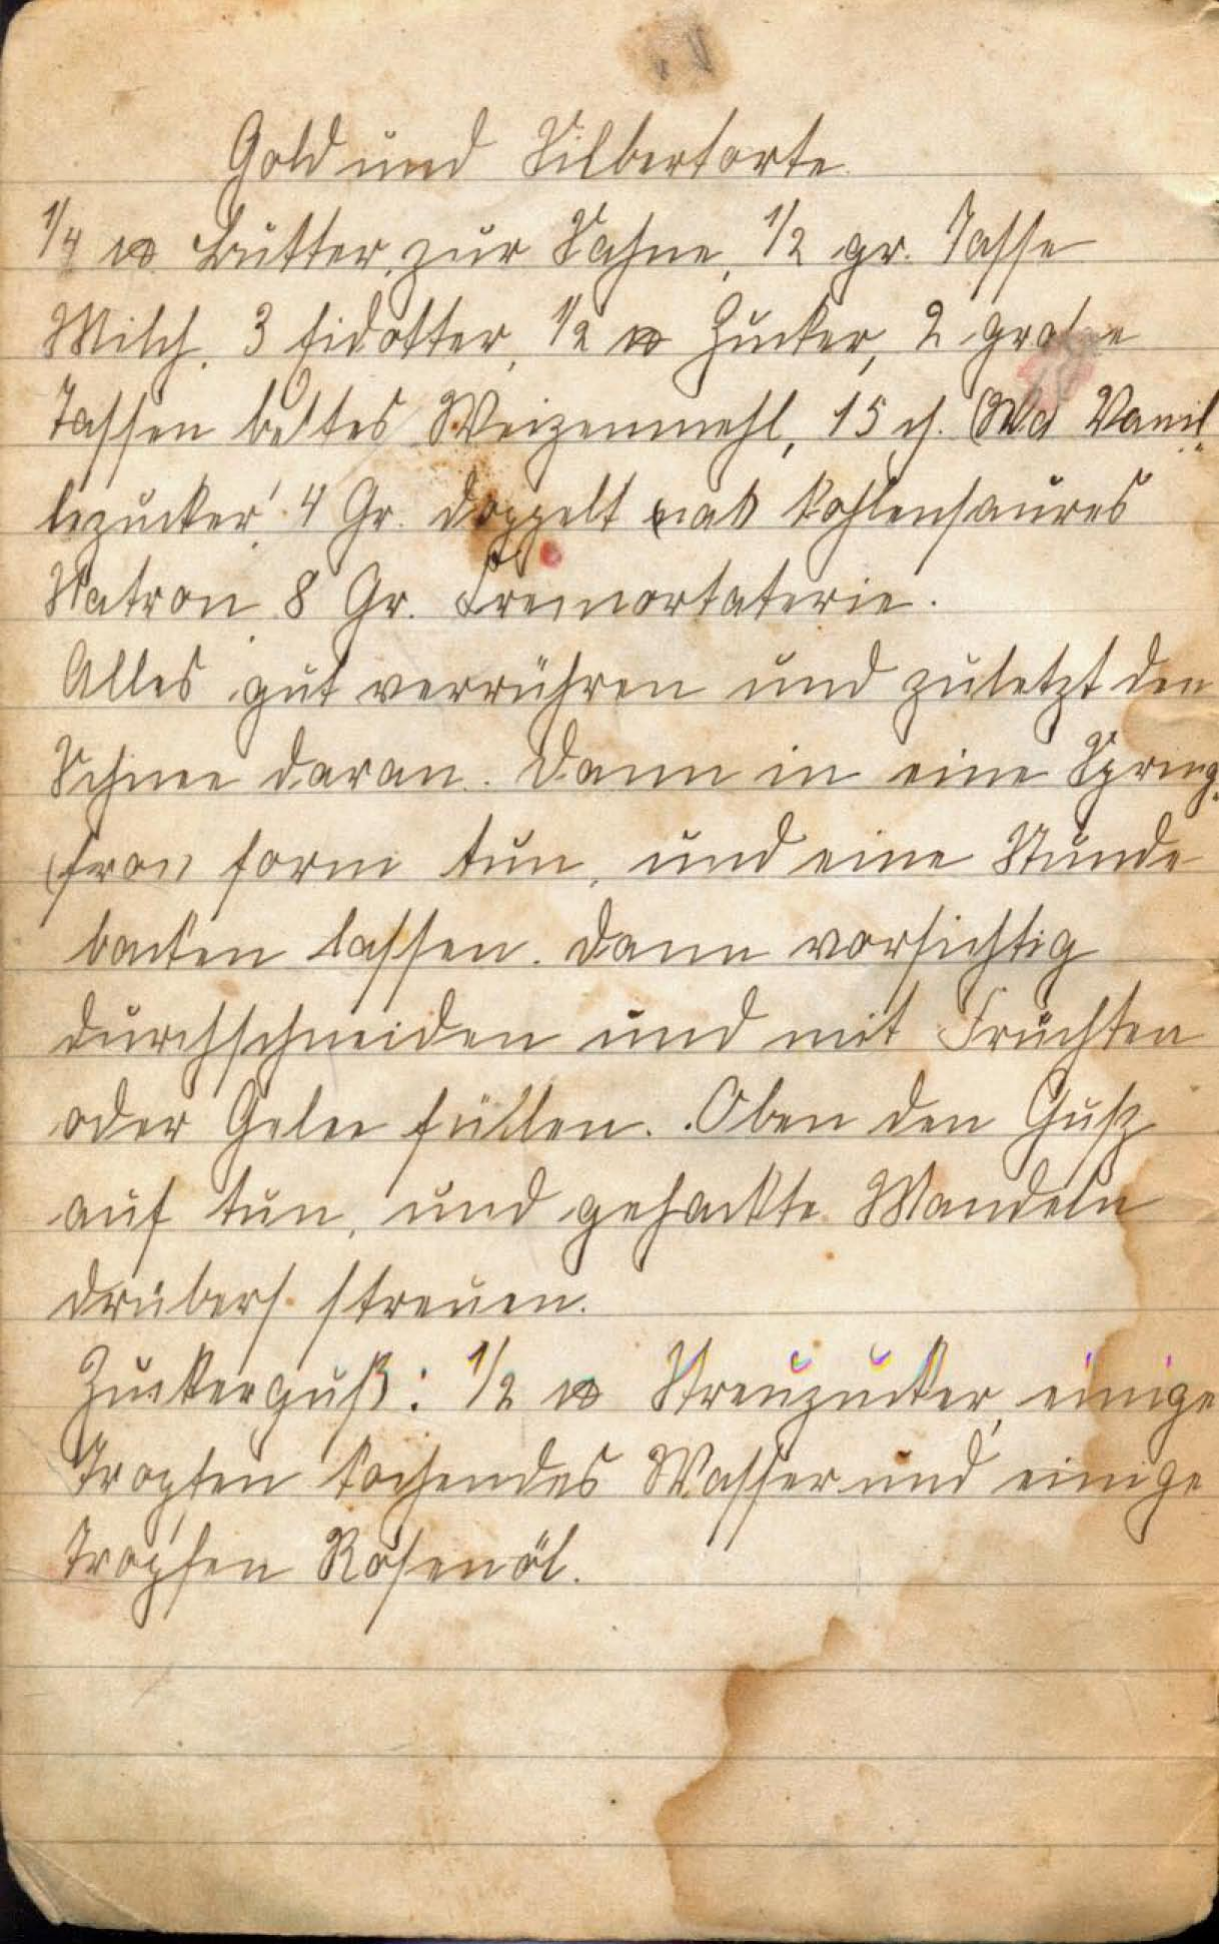 Gold und Silbertorte
1/4 ℔ Butter, zur Sahne, 1/2 gr. Tasse
Milch, 3 Eidotter, 1/2 ℔ Zucker, 2 große
Tassen bestes Weizenmehl, 15 Vanil
lezucker, 4 Gr. doppelt kohlensaures
Natron 8 Gr. Cremortaterie.
Alles gut verrühren und zuletzt den
Schnee daran. Dann in eine Spring
form tun, und eine Stunde
backen lassen. Dann vorsichtig
durchschneiden und mit Früchten
oder Gelee füllen. Oben den Guß
auf tun, und gehackte Mandeln
drübers streuen.
Zuckerguß: 1/2 ℔ Streuzucker, einige
Tropfen kochendes Wasser und einige
Tropfen Rosenöl.